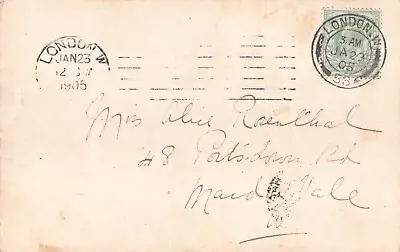 LONDON.W
JAN23
12
1905
LONDON.W
3.AM
JA 23
05
Miss Alice Rosenthal
48 Portsdown Rd
Maida Vale
W.